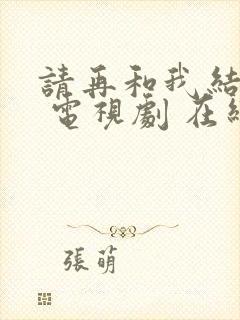 請再和我結
電視劇 在
張萌